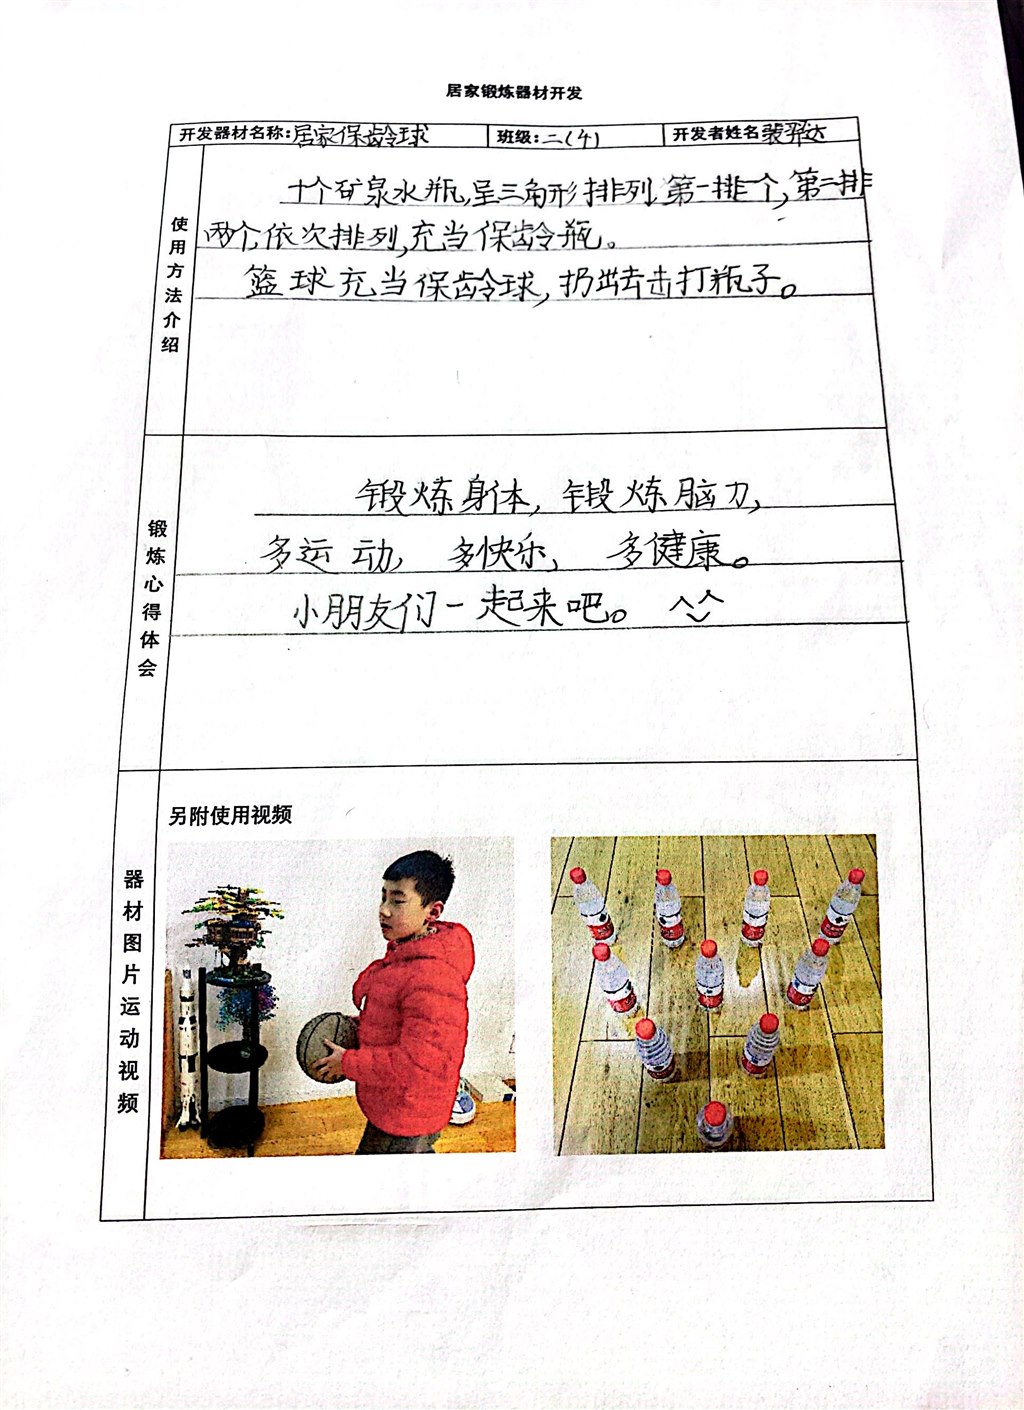 居家锻炼器材开发
开发器材名称:居家保龄球 班级:二(4) 开发者姓名 裴羿达
使用方法介绍
十个矿泉水瓶,呈三角形排列.第一排一个,第二排
两个,依次排列,充当保龄瓶。
篮球充当保龄球,扔出击打瓶子。
锻炼心得体会
锻炼身体,锻炼脑力,
多运动,多快乐,多健康。
小朋友们一起来吧。 ^^
器材图片运动视频
另附使用视频